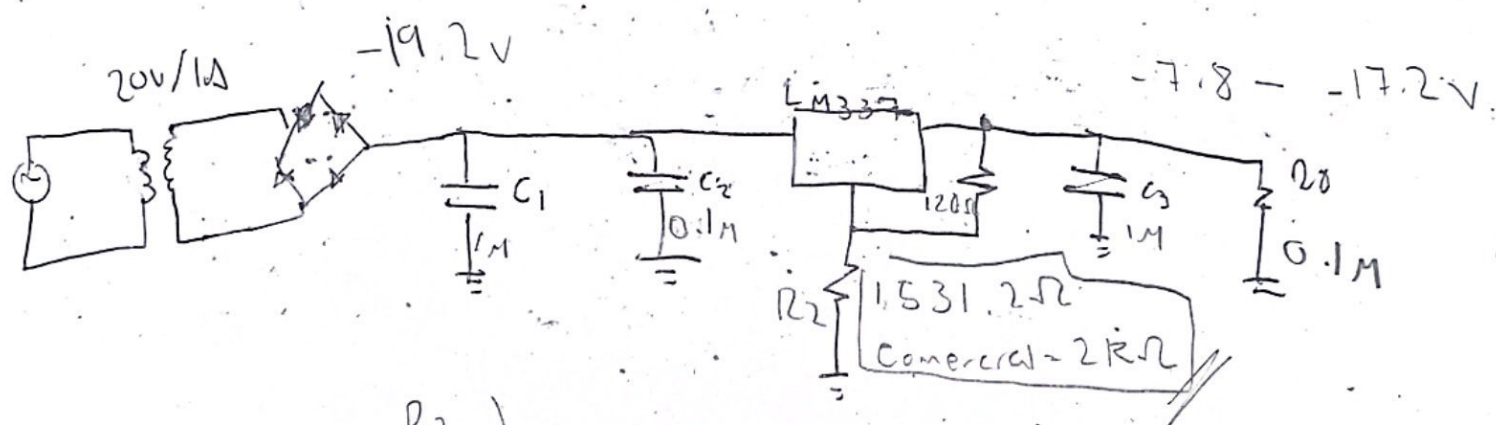 20V/1A
-19.2V
LM337
-7.8 - -17.2V.
C1
1M
C2
0.1M
120Ω
C3
1M
20
0.1M
R2
1531.2Ω
Comercial = 2KΩ
R2